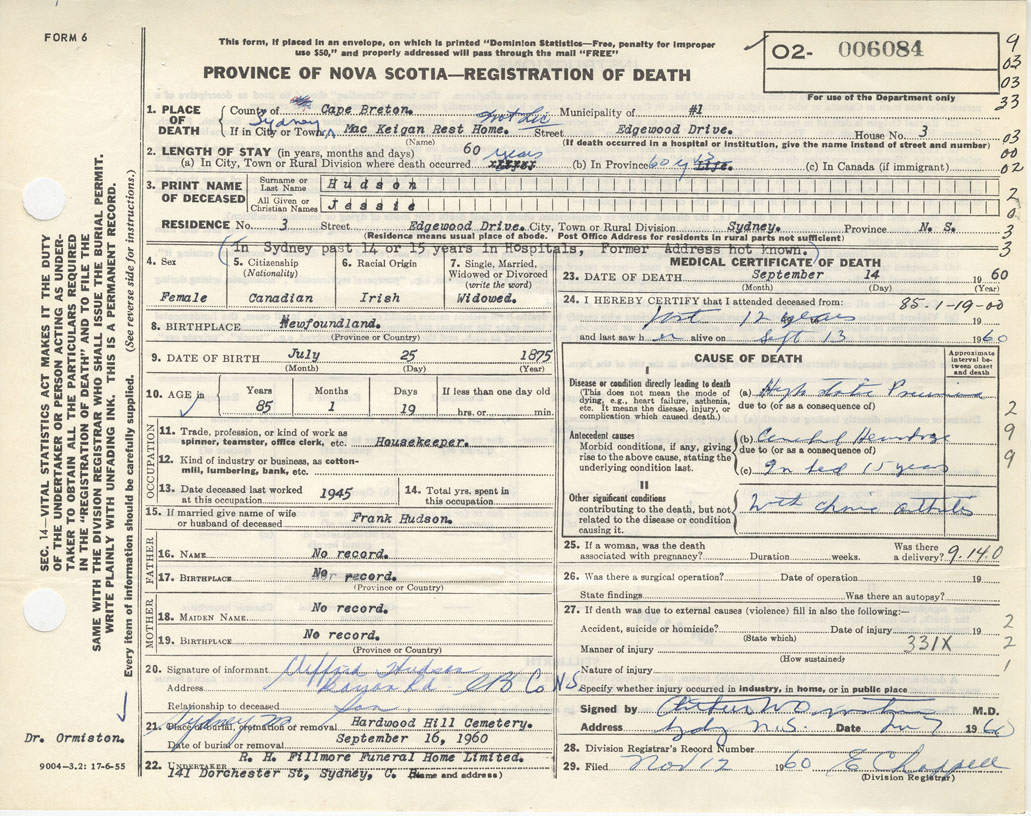 FORM 6
This form, if placed in an envelope, on which is printed "Dominion Statistics—Free, penalty for improper
use $50," and properly addressed will pass through the mail "FREE"
O2- 006084
For use of the Department only
PROVINCE OF NOVA SCOTIA—REGISTRATION OF DEATH
9
03
03
33
03
00
02
2
0
3
3
1. PLACE OF DEATH County of Cape Breton. Municipality of #1
If in City or Town Sydney Mac Keigan Rest Home. Street Edgewood Drive. House No. 3
(Name) (If death occurred in a hospital or institution, give the name instead of street and number)
2. LENGTH OF STAY (in years, months and days) 60 years
(a) In City, Town or Rural Division where death occurred (b) In Province 60 yrs (c) In Canada (if immigrant)
3. PRINT NAME OF DECEASED
Surname or Last Name Hudson
All Given or Christian Names Jessie
RESIDENCE No. 3 Street Edgewood Drive. City, Town or Rural Division Sydney. Province N. S.
(Residence means usual place of abode. Post Office Address for residents in rural parts not sufficient)
(In Sydney past 14 or 15 years in HOspitals, Former Address not known.)
4. Sex
Female
5. Citizenship (Nationality)
Canadian
6. Racial Origin
Irish
7. Single, Married, Widowed or Divorced (write the word)
Widowed.
8. BIRTHPLACE Newfoundland.
(Province or Country)
9. DATE OF BIRTH July 25 1875
(Month) (Day) (Year)
10. AGE in Years Months Days If less than one day old
85 1 19 hrs. or min.
OCCUPATION
11. Trade, profession, or kind of work as spinner, teamster, office clerk, etc. Housekeeper.
12. Kind of industry or business, as cotton-mill, lumbering, bank, etc.
13. Date deceased last worked at this occupation. 1945
14. Total yrs. spent in this occupation
15. If married give name of wife or husband of deceased Frank Hudson.
FATHER
16. NAME No record.
17. BIRTHPLACE No record.
(Province or Country)
MOTHER
18. MAIDEN NAME No record.
19. BIRTHPLACE No record.
(Province or Country)
20. Signature of informant Clifford Hudson
Address Rd CB Co NS
Relationship to deceased Son
21. Place of burial, cremation or removal Hardwood Hill Cemetery.
Sydney
Date of burial or removal September 16, 1960
22. UNDERTAKER R. H. Fillmore Funeral Home Limited.
141 Dorchester St, Sydney, C. B (Name and address)
MEDICAL CERTIFICATE OF DEATH
23. DATE OF DEATH September 14 1960
(Month) (Day) (Year)
24. I HEREBY CERTIFY that I attended deceased from: 85-1-19-00
12 years 19
and last saw h er alive on Sept 13 1960
CAUSE OF DEATH
Approximate interval between onset and death
I
Disease or condition directly leading to death
(This does not mean the mode of dying, e.g., heart failure, asthenia, etc. It means the disease, injury, or complication which caused death.)
(a) Hypostatic Pneumonia
due to (or as a consequence of)
Antecedent causes
Morbid conditions, if any, giving rise to the above cause, stating the underlying condition last.
(b) Cerebral Hemorrhage
due to (or as a consequence of)
(c) In bed 15 years
II
Other significant conditions
contributing to the death, but not related to the disease or condition causing it.
with chronic arthritis
2
9
9
25. If a woman, was the death associated with pregnancy? Duration weeks. Was there a delivery? 9.140
26. Was there a surgical operation? Date of operation 19
State findings Was there an autopsy?
27. If death was due to external causes (violence) fill in also the following:—
Accident, suicide or homicide? Date of injury 19
(State which)
Manner of injury 331X
(How sustained)
Nature of injury
2
2
1
Specify whether injury occurred in industry, in home, or in public place
Signed by M.D.
Address Sydney N.S. Date 1960
28. Division Registrar's Record Number
29. Filed Nov 12 1960 E Chappell
(Division Registrar)
SEC. 14—VITAL STATISTICS ACT MAKES IT THE DUTY
OF THE UNDERTAKER OR PERSON ACTING AS UNDER-
TAKER TO OBTAIN ALL THE PARTICULARS REQUIRED
IN THE "REGISTRATION OF DEATH" AND TO FILE THE
SAME WITH THE DIVISION REGISTRAR WHO SHALL ISSUE THE BURIAL PERMIT.
WRITE PLAINLY WITH UNFADING INK. THIS IS A PERMANENT RECORD.
Every item of information should be carefully supplied. (See reverse side for instructions.)
Dr. Ormiston.
9004-3.2: 17-6-55